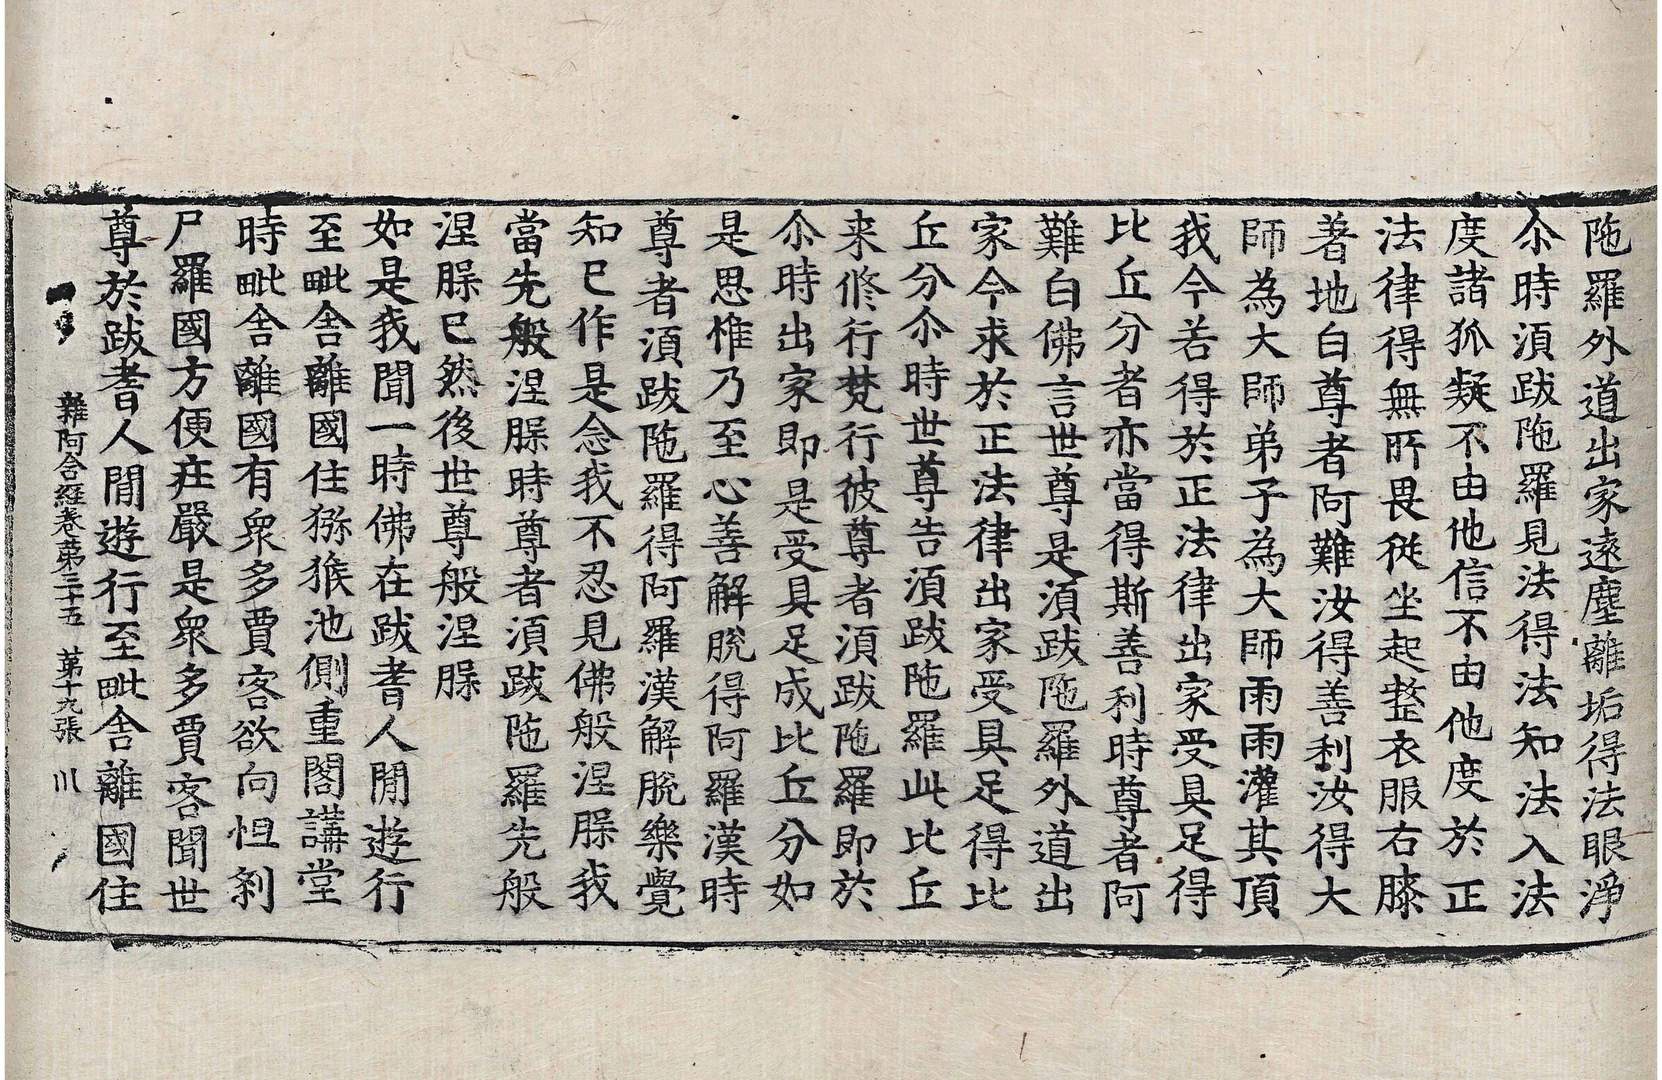 陁羅外道出家遠塵離垢得法眼淨
尒時湏跋陁羅見法得法知法入法
度諸狐疑不由他信不由他度於正
法律得無所畏從坐起整衣服右膝
著地白尊者阿難汝得善利汝得大
師為大師弟子為大師雨雨灌其頂
我今若得於正法律出家受具足得
比丘分者亦當得斯善利時尊者阿
難白佛言世尊是湏跋陁羅外道出
家今求於正法律出家受具足得比
丘分尒時世尊告湏跋陁羅此比丘
来修行梵行彼尊者湏跋陁羅即於
尒時出家即是受具足成比丘分如
是思惟乃至心善解脫得阿羅漢時
尊者湏跋陁羅得阿羅漢解脫樂覺
知已作是念我不忍見佛般涅槃我
當先般涅槃時尊者湏跋陁羅先般
涅槃已然後世尊般涅槃
如是我聞一時佛在跋耆人閒遊行
至毗舍離國住獼猴池側重閣講堂
時毗舍離國有衆多賈客欲向怛剎
尸羅國方便疘嚴是衆多賈客聞世
尊於跋耆人閒遊行至毗舍離國住
雜阿含經卷第三十五 第十九張 川